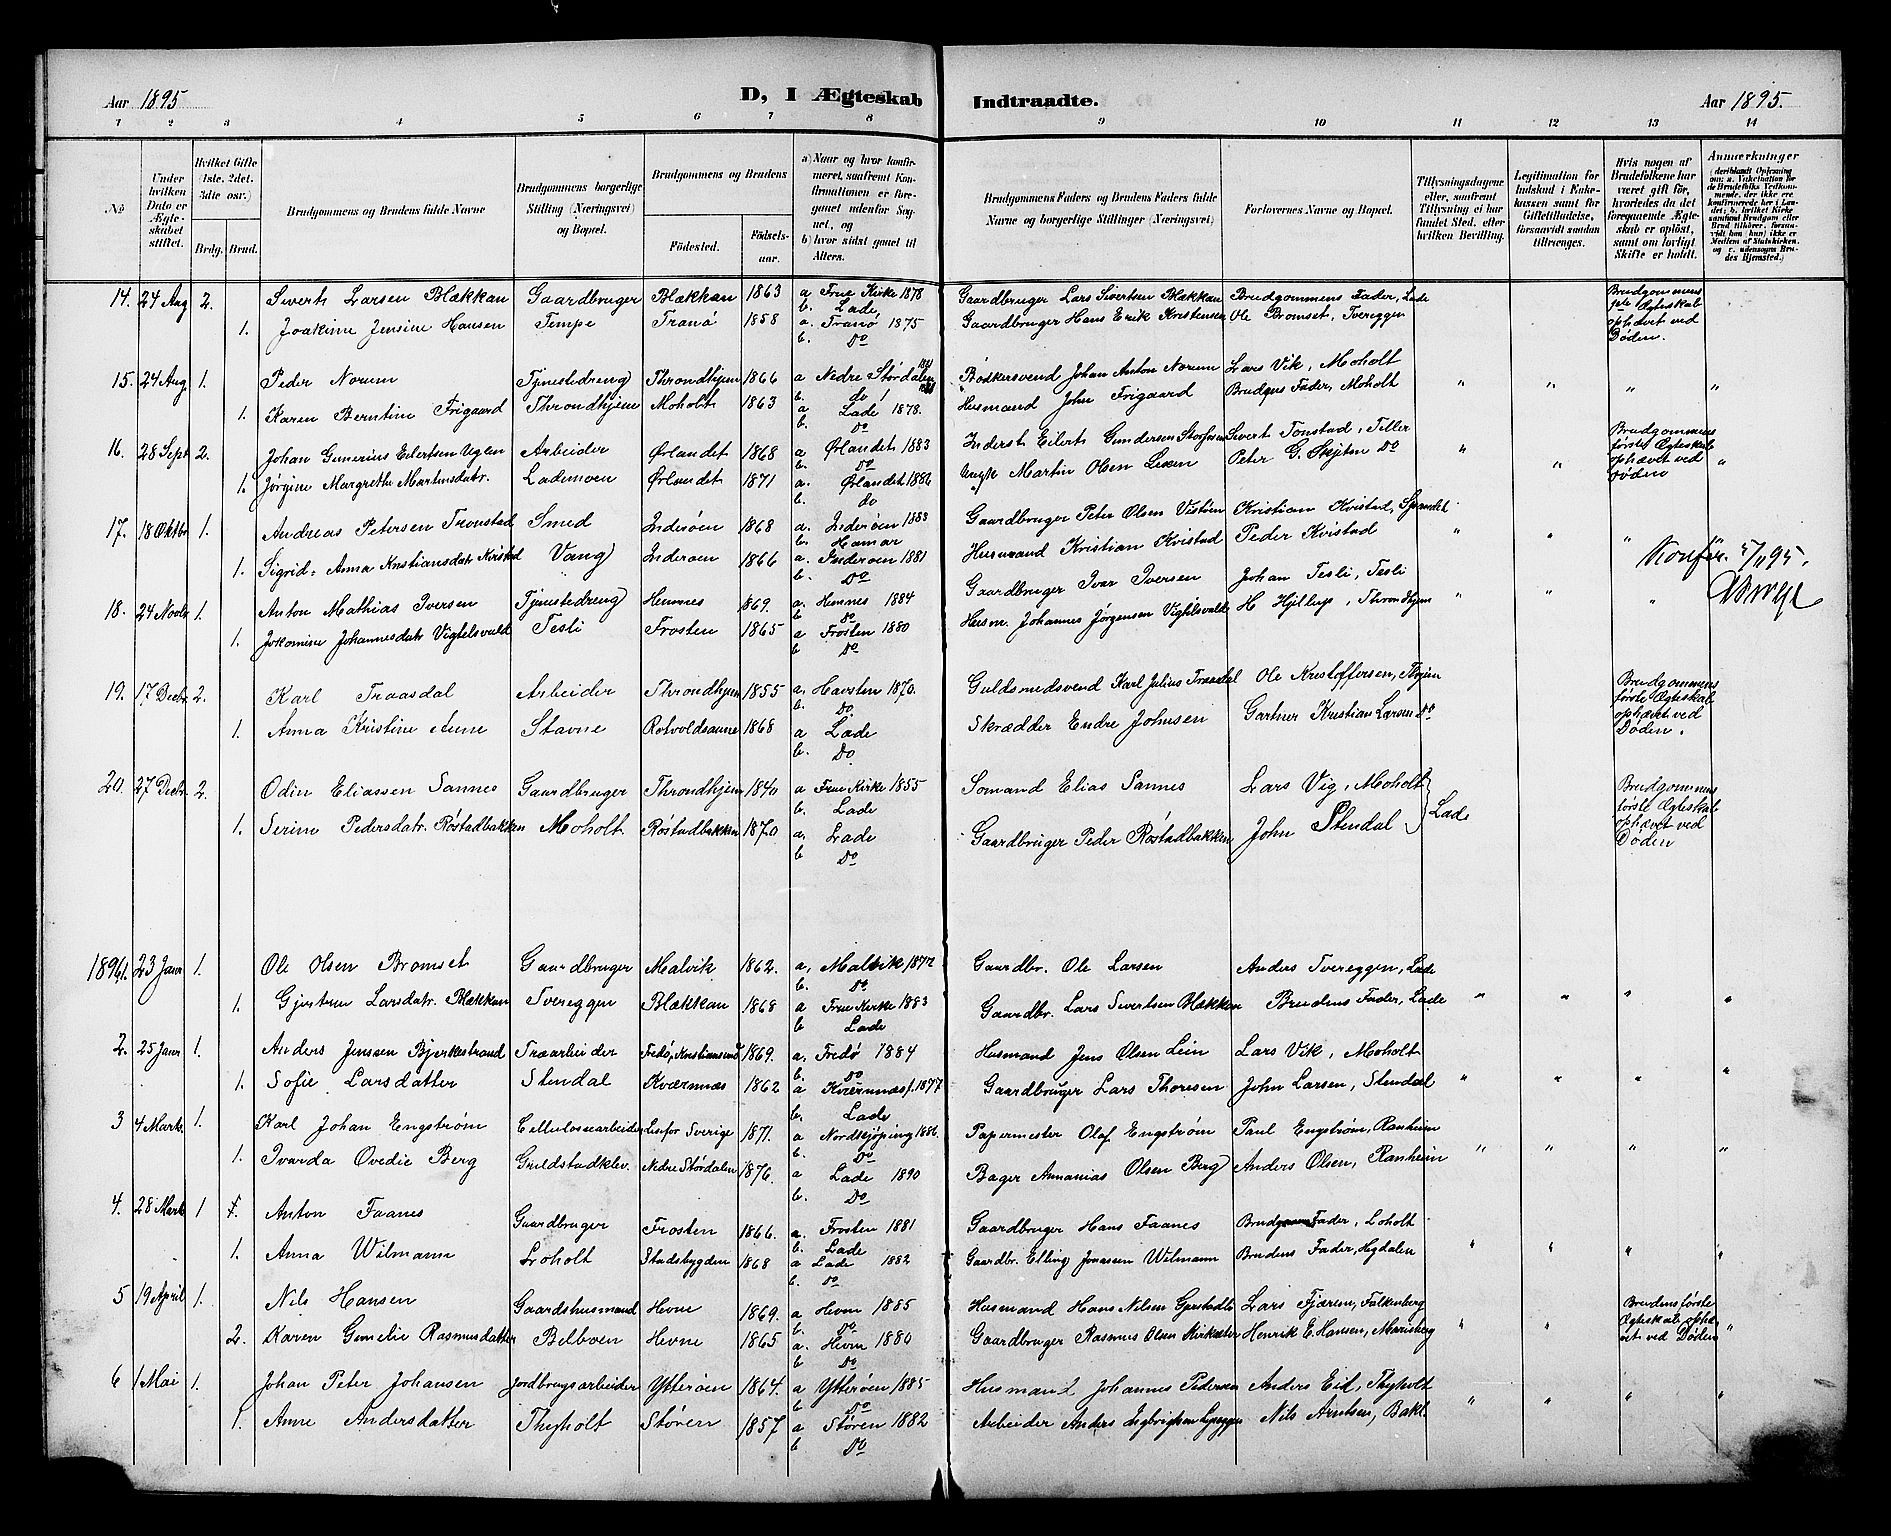 Aar 1895 D, I Ægteskab Indtraadte. Aar 1895.
1 2 3 4 5 6 7 8 9 10 11 12 13 14
No
Under hvilken Dato er Ægteskabet stiftet.
Hvilket Gifte (1ste, 2det, 3die osv.)
Brdg. Brud.
Brudgommens og Brudens fulde Navne
Brudgommens borgerlige Stilling (Næringsvei) og Bopæl.
Brudgommens og Brudens
Fødested. Fødselsaar.
a) Naar og hvor konfirmeret, saafremt Konfirmationen er foregaaet udenfor Sognet, og
b) hvor sidst gaaet til Alters.
Brudgommens Faders og Brudens Faders fulde Navne og borgerlige Stillinger (Næringsvei)
Forlovernes Navne og Bopæl.
Tillysningsdagene eller, saafremt Tillysning ei har fundet Sted, efter hvilken Bevilling.
Legitimation for Indskud i Enkekassen samt for Giftetilladelse, forsaavidt saadan tiltrænges.
Hvis nogen af Brudefolkene har været gift før, hvorledes da det foregaaende Ægteskab er opløst, samt om lovligt Skifte er holdt.
Anmærkninger
14. 24 Aug 2. Sivert Larsen Blækkan Gaardbruger Blækkan 1863 a Frue Kirke 1878 Gaardbruger Lars Sivertsen Blækkan Brudgommens Fader, Lade Brudgommens
b. Lade, Ægteskab
1. Joakime Jensine Hansen Tempe Tranø 1858 a. Tranø 1875 Gaardbruger Hans Erik Kristensen Ole Bromset, Tvereggen ophævet ved
b. Do Døden.
15. 24 Aug 1. Peder Norum Tjenestedreng Throndhjem 1866 a Nedre Størdalen Bødkersvend Johan Anton Norum Lars Vik, Moholt
b. do
1. Karen Berntine Frigaard Throndhjem Moholt 1863 a Lade 1878. Husmand John Frigaard Brudens Fader, Moholt " " " "
b. Do
16. 28 Sept 2. Johan Gunerius Eilertsen Uglen Arbeider Ørlandet 1868 a Ørlandet 1883 Inderst Eilert Gundersen Sivert Tonstad, Tiller Brudgommens
b. Do første Ægteskab
1. Jørgine Margrethe Martinsdatr. Lademoen Ørlandet 1871 a. Ørlandet 1886 Martin Olsen Peter G. Skjiten Do " " ophævet ved Døden "
b. do
17. 18 Oktbr 1. Andreas Petersen Tronstad Smed Inderøen 1868 a. Inderøen 1883 Gaardbruger Peter Olsen Kristian Kvistad,
b. Hamar
1. Sigrid Anna Kristiansdatr Kvistad Vang Inderøen 1866 a. Inderøen 1881 Husmand Kristian Kvistad Peder Kvistad " " "
b. Do Konfer.
18. 24 Novbr 1. Anton Mathias Iversen Tjenestedreng Hemnes 1869. a. Hemnes 1884 Gaardbruger Ivar Iversen Johan Tesli, Tesli
b Do
1. Johannesdatr Vigtelsvald Tesli Frosten 1865 a Frosten 1880 Husm. Johannes Jørgensen Vigtelsvald H Hjeltup, Throndhjem " " "
b Do
19. 17 Decbr 2. Karl Traasdal Arbeider Throndhjem 1855 a. Havsten 1870. Guldsmedsvend Karl Julius Traasdal Ole Kristoffersen, Thjem Brudgommens
b. Do første Ægteskab
1. Anna Kristine Aune Stavne Rotvoldsaune 1868 a Lade Skrædder Endre Johnsen Gartner Kristian Larsen Do ophævet ved
b. Do Døden.
20. 27 Decbr 2. Odin Eliassen Sannes Gaardbruger Throndhjem 1840 a Frue Kirke 1855 Sømand Elias Sannes Lars Vig, Moholt Brudgommens
b. Lade første Ægteskab
1. Serine Pedersdatr. Røstadbakken Moholt Røstadbakken 1870 a. Lade Gaardbruger Peder Røstadbakken John Stendal } Lade ophævet ved
b Do Døden
1896 1. 23 Janr 1. Ole Olsen Bromset Gaardbruger Malvik 1862. a, Malvik 1877 Gaardbr. Ole Larsen Anders Tvereggen, Lade
b. Do
1. Gjertrun Larsdatr. Blækkan Tvereggen Blækkan 1868 a Frue Kirke 1883 Gaardbr. Lars Sivertsen Blækkan Brudens Fader, Lade " " " "
b Lade
2. 25 Janr 1. Anders Jenssen Bjerkestrand Træarbeider Fredø, Kristiansund 1869. a. Fredø 1884 Husmand Jens Olsen Lein Lars Vik, Moholt
b. Do
1. Sofie Larsdatter Stendal Kværnnæs 1862 a Kværnnæs 1877 Gaardbruger Lars Thoresen John Larsen, Stendal " " " "
b. Lade
3 4 Marts 1. Karl Johan Engstrøm Cellulosearbeider Sverige 1871. a Nordkjøping 1886. Papermester Olaf Engstrøm Paul Engstrøm, Ranheim
b. Do
1. Ivarda Ovedie Berg Grildstadklev. Nedre Størdalen 1876. a Lade 1890 Bager Annanias Olsen Berg Anders Olsen, Ranheim " " " "
b. Do
4. 28 Marts 1 Anton Faanes Gaardbruger Frosten 1866. a. Frosten 1881 Gaardbruger Hans Faanes Fader, Loholt
b. Lade
1. Anna Wilmann Loholt Stadsbygden 1868 a Lade 1882 Gaardbr. Elling Jonassen Wilmann Brudens Fader, Hegdalen " " " "
b. Do
5 19 April 1. Nils Hansen Gaardshusmand Hevne 1869. a Hevne 1885 Husmand Hans Nilsen Lars Fjæren, Falkenberg Brudens første
b. Do Ægteskab ophæ-
2. Karen Gemelie Rasmusdatter Belboen Hevne 1865 a. Hevne 1880 Gaardbruger Rasmus Olsen Kirksæter Henrik E. Hansen, Marieberg " " vet ved Døden "
b Do
6 1 Mai 1. Johan Peter Johansen Jordbrugsarbeider Ytterøen 1864. a Ytterøen 1885 Husmand Johannes Pedersen Anders Eid, Thyholt
b. Do
1. Anne Andersdatter Thyholt Støren 1857 a Støren 1882 Arbeider Anders Nils Arntsen, Bakl. " " " "
b Do